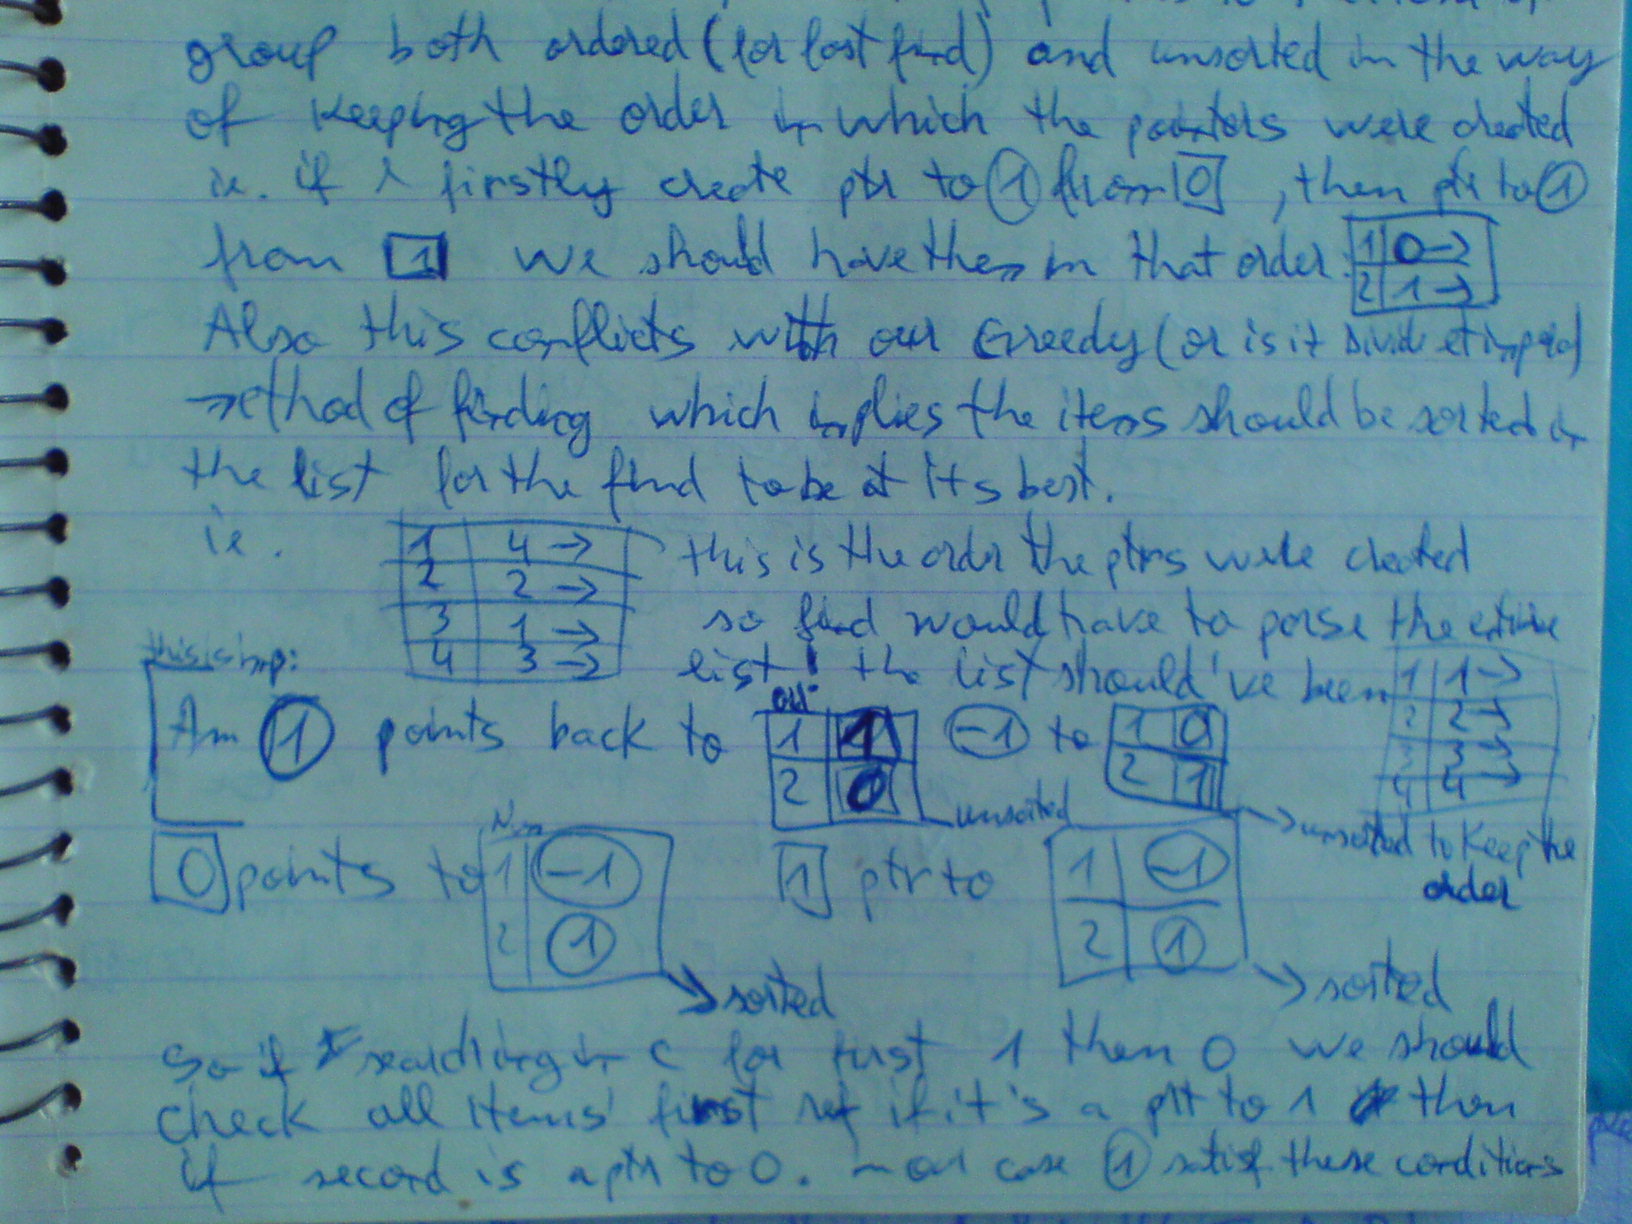 group both ordered (for fast find) and unsorted in the way
of keeping the order in which the pointers were created
ie. if I firstly create ptr to 1 from 0, then ptr to 1
from 1 we should have them in that order:
1 0→
2 1→
Also this conflicts with our Greedy (or is it divide et impera)
method of finding which implies the items should be sorted in
the list for the find to be at its best.
ie.
1 4→
2 2→
3 1→
4 3→
this is the order the ptrs were created
so find would have to parse the entire
list! the list should've been
1 1→
2 2→
3 3→
4 4→
this is imp:
1 points back to
1 1
2 0
unsorted
-1 to
1 0
2 1
→ unsorted to keep the
order
0 points to
1 -1
2 1
→ sorted
1 ptr to
1 -1
2 1
→ sorted
So if searching in C for first 1 then 0 we should
check all items' first ref if it's a ptr to 1 then
if second is a ptr to 0. our case 1 satisf these conditions